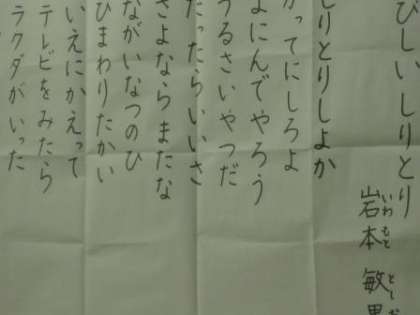 びしいしりとり
いわもと とし
岩本 敏男
しりとりしよか
かってにしろよ
よにんでやろう
うるさいやつだ
だったらいいさ
さよならまたな
ながいなつのひ
ひまわりたかい
いえにかえって
テレビをみたら
ラクダがいった